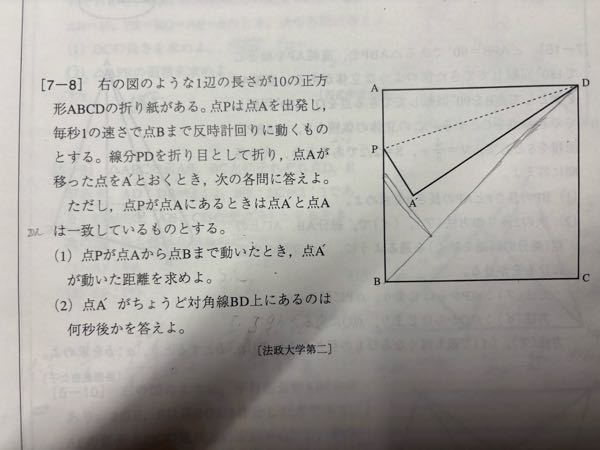 [7-8] 右の図のような1辺の長さが10の正方
形ABCDの折り紙がある。点Pは点Aを出発し,
毎秒1の速さで点Bまで反時計回りに動くもの
とする。線分PDを折り目として折り,点Aが
移った点をA´とおくとき,次の各問に答えよ。
ただし,点Pが点Aにあるときは点A´と点A
は一致しているものとする。
(1) 点Pが点Aから点Bまで動いたとき,点A´
が動いた距離を求めよ。
(2) 点A´がちょうど対角線BD上にあるのは
何秒後かを答えよ。
[法政大学第二]
A
D
P
A´
B
C